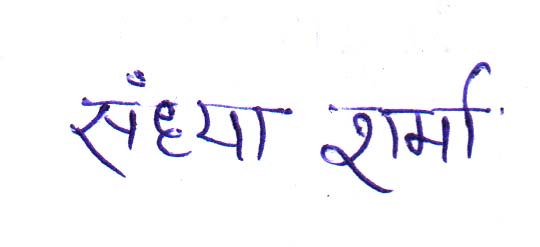 संध्या शर्मा